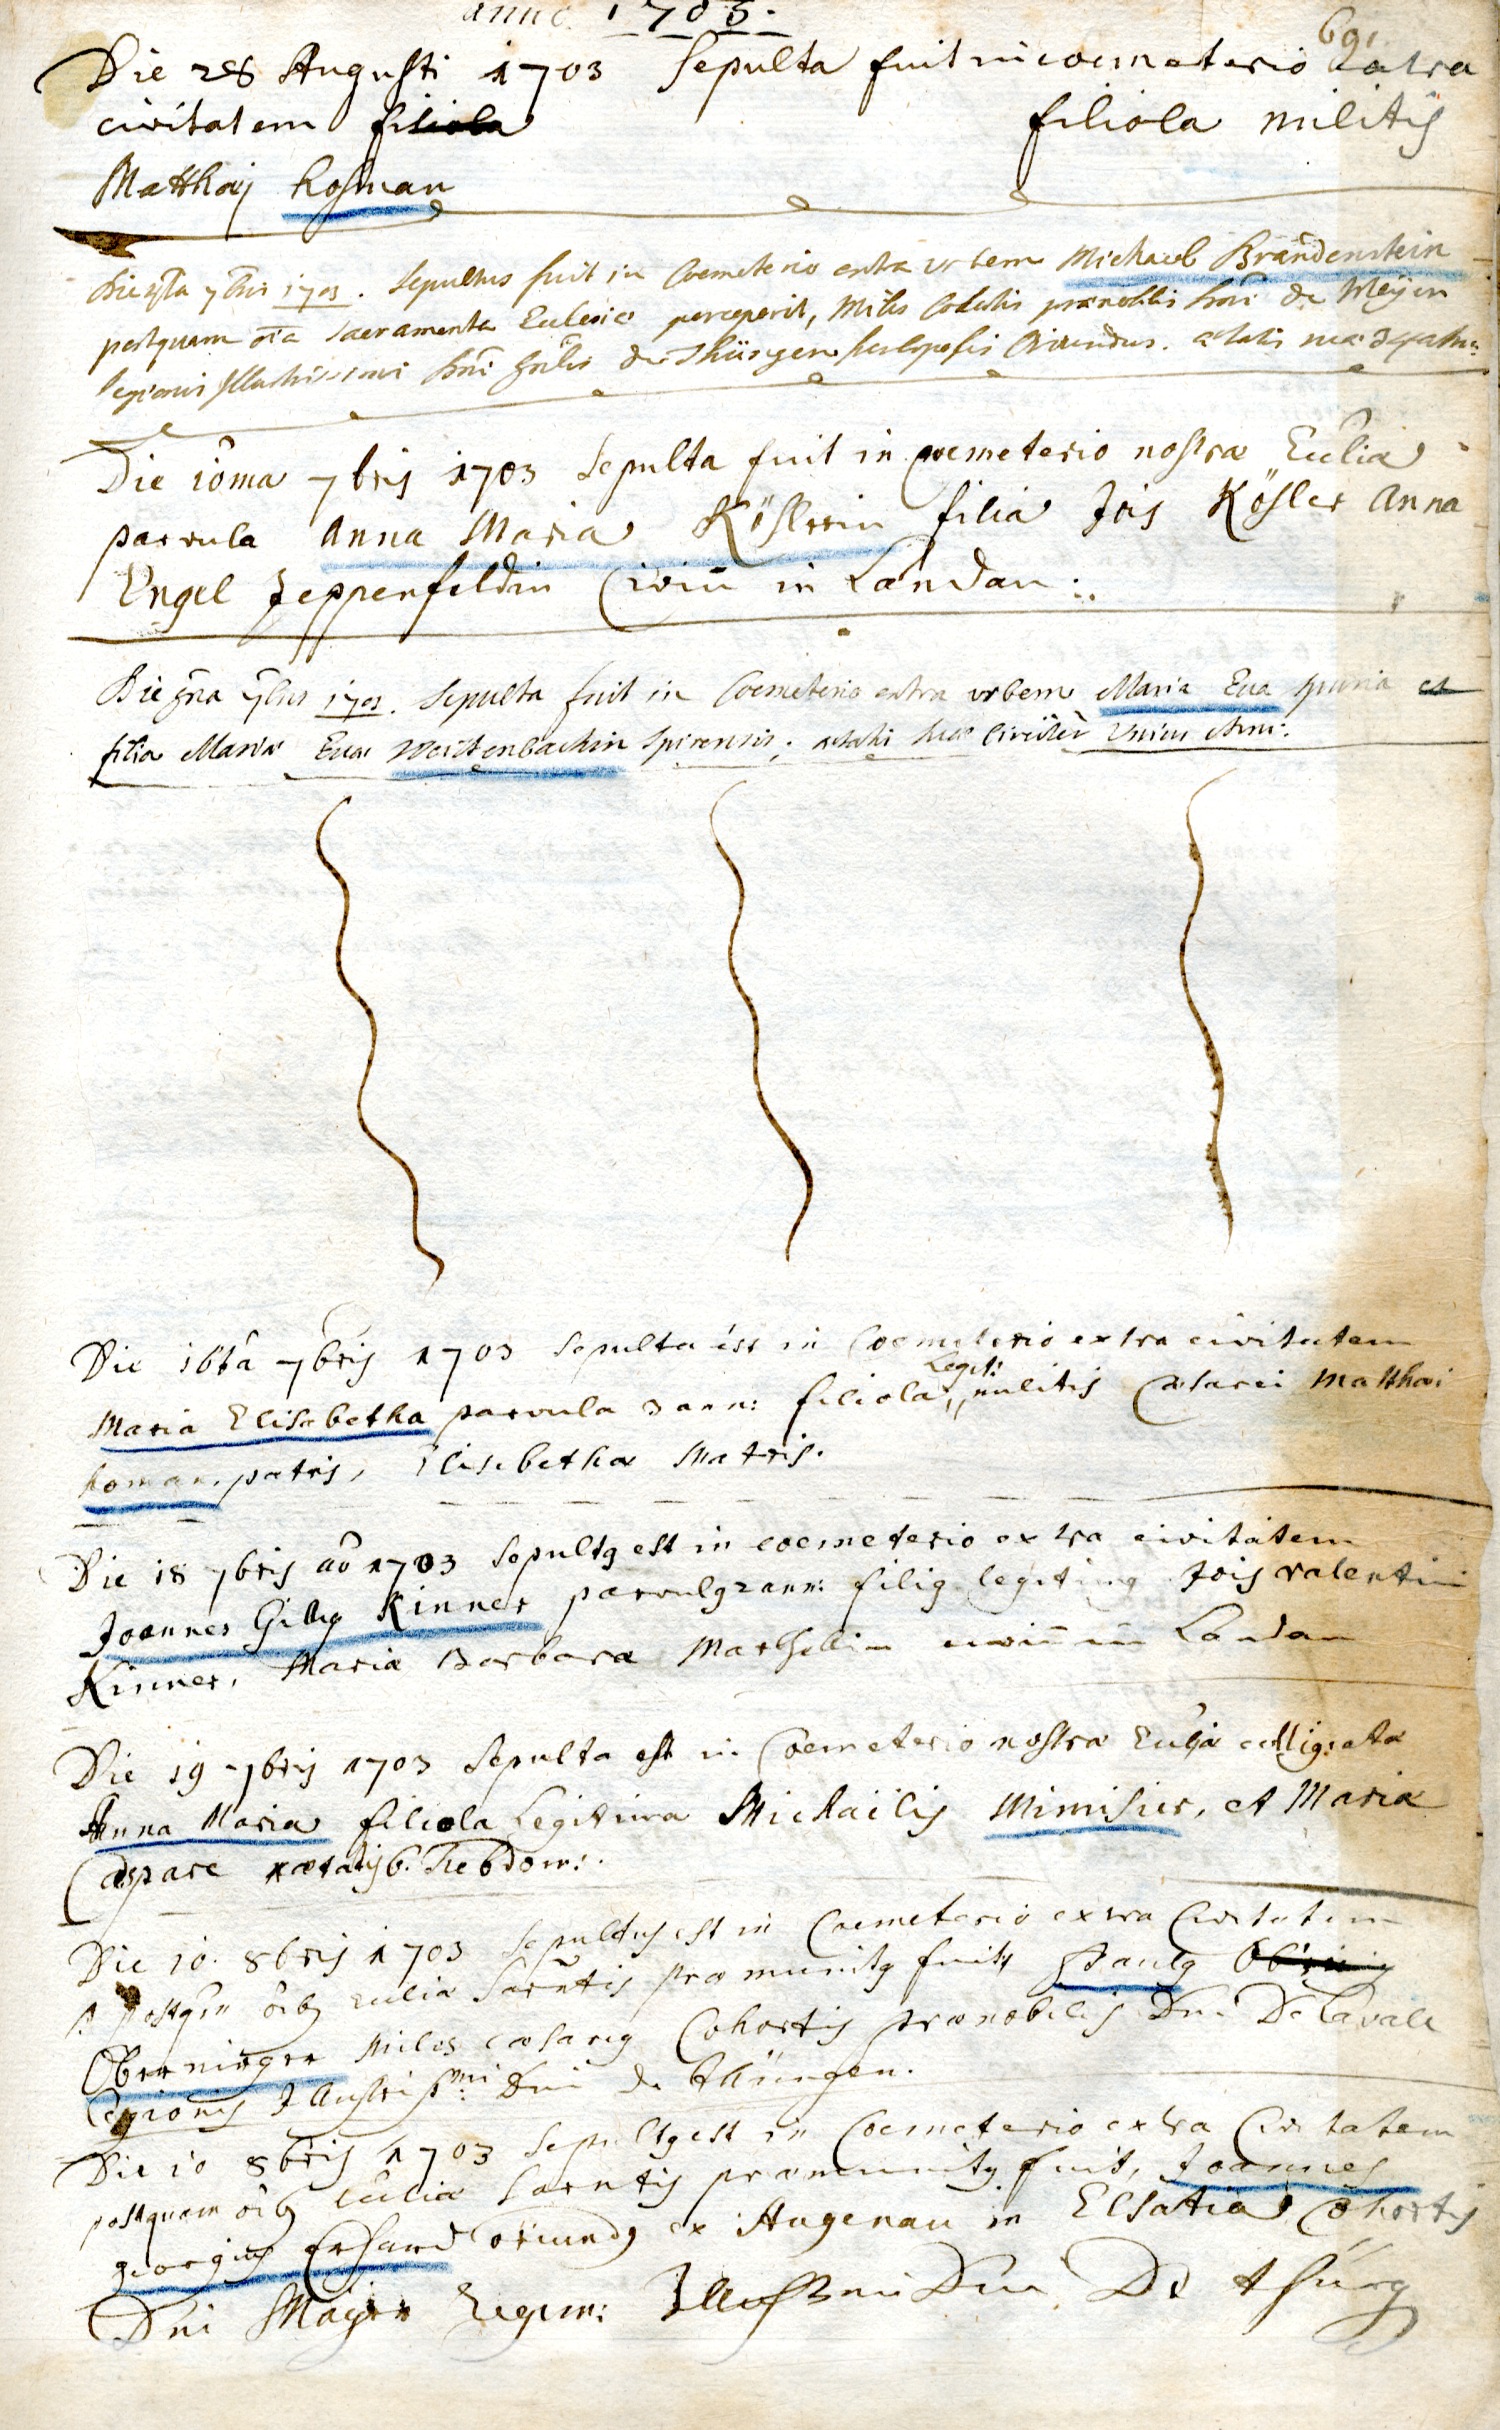 anno 1703.
691
Die 28 Augusti 1703 Sepulta fuit in coemeterio extra
civitatem filiola filiola militis
Matthaij Rosman
Die 7bris 1703. Sepultus fuit in Coemeterio extra urbem Michael Brandenstein
postquam oia sacramenta Ecclesiae perceperit, Miles Cohortis praenobilis Dni de Meijer
legionis Illustrissimi Dni de Thüngen Oriundus. aetatis suae
Die 10ma 7bris 1703 Sepulta fuit in coemeterio nostra Ecclia
parvula Anna Maria Köslerin filia Jois Kösler Anna
Engel Zeppenfeldin Civiu in Landau :.
Die 7bris 1703. Sepulta fuit in Coemeterio extra urbem Maria Eua spuria et
filia Maria Eua Weittenbachin Spirensis; aetatis suae circiter unius Anni.
Die 16ta 7bris 1703 Sepulta est in Coemeterio extra civitatem
Maria Elisabetha parvula 3 ann: filiola Legit: militis Caesarei Matthaei
Roman. patris, Elisabetha Matris.
Die 18 7bris ao 1703 Sepultg est in coemeterio extra civitatem
Joannes Gillig Kinner parvulg 2 ann: filig legitimg Jois valentini
Kinner, Maria Barbara civiu in Landau
Die 19 7bris 1703 Sepulta est in Coemeterio nostra Ecclia
Anna Maria filiola Legitima Michaëlis Minisier, et Maria
Caspare aetatis 6. Hebdom:.
Die 10. 8bris 1703 Sepultus est in Coemeterio extra Civitatem
postqm oibg Ecclia Sacrntis praemunitg fuit Paulg
Oberninger Miles caesareg Cohortis praenobilis Dni De Lavale
Legionis Illustrissmi Dni de thüngen.
Die 10 8bris 1703 Sepultg est in Coemeterio extra Civitatem
postquam oibg Ecclia Sacrntis praemunitg fuit, Joannes
georgius Erhard oriundg ex Hagenau in Elsatia Cohortis
Dni Majer Regim: Illustrmi Dni De thüng